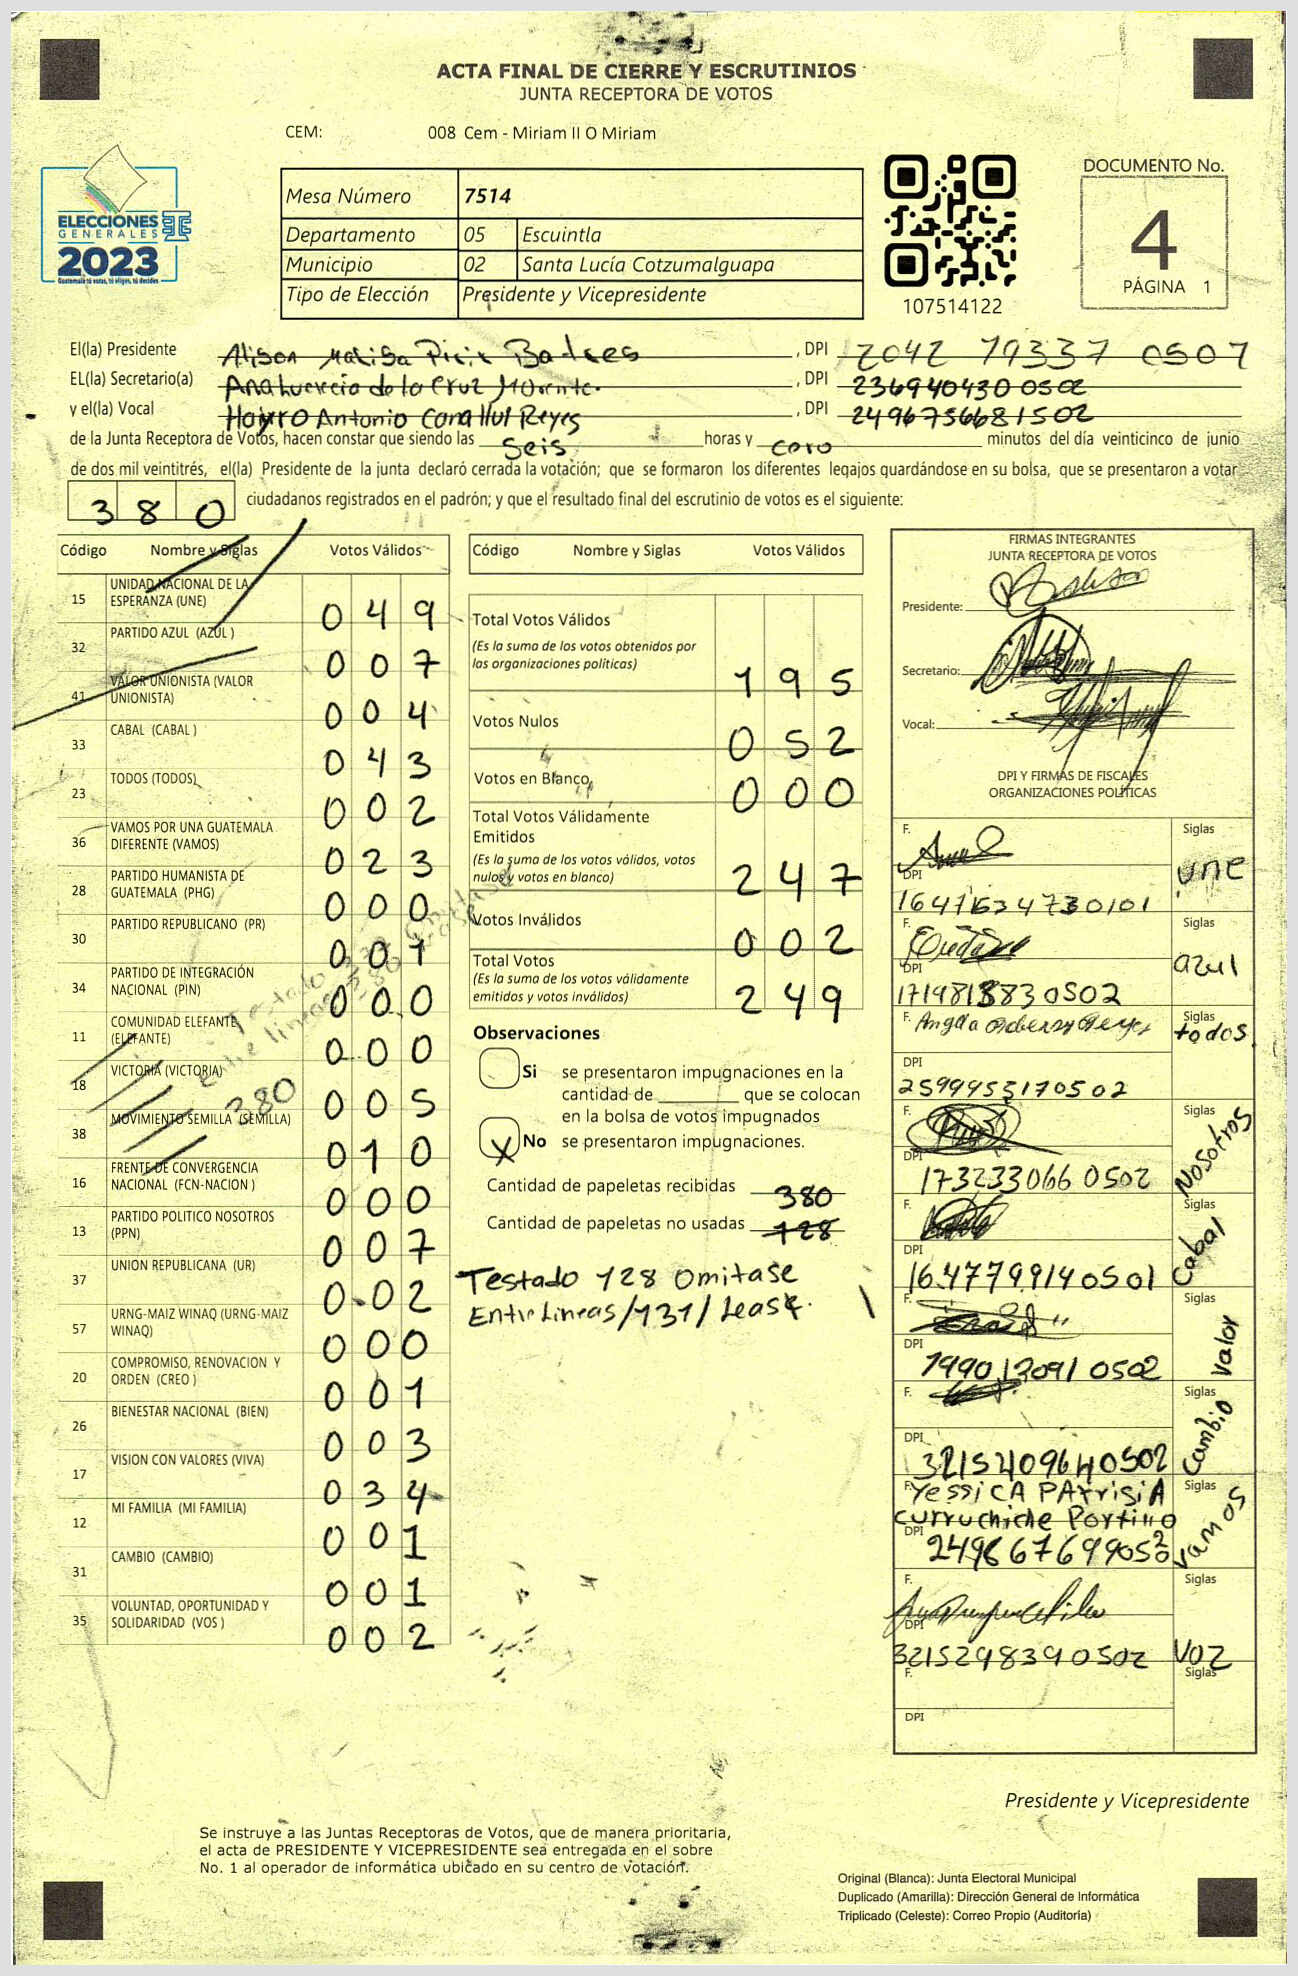 ACTA FINAL DE CIERRE Y ESCRUTINIOS
JUNTA RECEPTORA DE VOTOS
CEM: 008 Cem - Miriam II O Miriam
ELECCIONES
GENERALES
2023
Guatemala tú votas, tú eliges, tú decides
Mesa Número 7514
Departamento 05 Escuintla
Municipio 02 Santa Lucía Cotzumalguapa
Tipo de Elección Presidente y Vicepresidente
107514122
DOCUMENTO No.
4
PÁGINA 1
El(la) Presidente Alison Batres , DPI 2042 79337 0507
EL(la) Secretario(a) de la Cruz , DPI 236940430 0502
y el(la) Vocal Antonio Reyes , DPI 2496756681502
de la Junta Receptora de Votos, hacen constar que siendo las Seis horas y cero minutos del día veinticinco de junio
de dos mil veintitrés, el(la) Presidente de la junta declaró cerrada la votación; que se formaron los diferentes legajos guardándose en su bolsa, que se presentaron a votar
380 ciudadanos registrados en el padrón; y que el resultado final del escrutinio de votos es el siguiente:
Código Nombre y Siglas Votos Válidos
15 UNIDAD NACIONAL DE LA ESPERANZA (UNE) 049
32 PARTIDO AZUL (AZUL ) 007
41 VALOR UNIONISTA (VALOR UNIONISTA) 004
33 CABAL (CABAL ) 043
23 TODOS (TODOS) 002
36 VAMOS POR UNA GUATEMALA DIFERENTE (VAMOS) 023
28 PARTIDO HUMANISTA DE GUATEMALA (PHG) 000
30 PARTIDO REPUBLICANO (PR) 001
34 PARTIDO DE INTEGRACIÓN NACIONAL (PIN) 000
11 COMUNIDAD ELEFANTE (ELEFANTE) 000
18 VICTORIA (VICTORIA) 005
38 MOVIMIENTO SEMILLA (SEMILLA) 010
16 FRENTE DE CONVERGENCIA NACIONAL (FCN-NACION ) 000
13 PARTIDO POLITICO NOSOTROS (PPN) 007
37 UNION REPUBLICANA (UR) 002
57 URNG-MAIZ WINAQ (URNG-MAIZ WINAQ) 000
20 COMPROMISO, RENOVACION Y ORDEN (CREO ) 001
26 BIENESTAR NACIONAL (BIEN) 003
17 VISION CON VALORES (VIVA) 034
12 MI FAMILIA (MI FAMILIA) 001
31 CAMBIO (CAMBIO) 001
35 VOLUNTAD, OPORTUNIDAD Y SOLIDARIDAD (VOS ) 002
Testado
entre lineas 380
380
Código Nombre y Siglas Votos Válidos
Total Votos Válidos
(Es la suma de los votos obtenidos por
las organizaciones políticas) 195
Votos Nulos 052
Votos en Blanco 000
Total Votos Válidamente
Emitidos
(Es la suma de los votos válidos, votos
nulos y votos en blanco) 247
Votos Inválidos 002
Total Votos
(Es la suma de los votos válidamente
emitidos y votos inválidos) 249
Observaciones
Si se presentaron impugnaciones en la
cantidad de ______ que se colocan
en la bolsa de votos impugnados
X No se presentaron impugnaciones.
Cantidad de papeletas recibidas 380
Cantidad de papeletas no usadas 128
Testado 128 Omitase
Entre Lineas /131/ Lease.
FIRMAS INTEGRANTES
JUNTA RECEPTORA DE VOTOS
Presidente:
Secretario:
Vocal:
DPI Y FIRMAS DE FISCALES
ORGANIZACIONES POLÍTICAS
F. Siglas
DPI une
F. Siglas
DPI azul
F. Angela Siglas
DPI todos
2599455170502
F. Siglas
DPI Nosotros
173233066 0502
F. Siglas
DPI Cabal
1647799140501
F. Siglas
DPI Valor
1990130910502
F. Siglas
DPI Cambio
3215409640502
F. Yessica Patrisia Siglas
Curruchiche Portillo
DPI Vamos
F. Siglas
DPI
3215298390502 VOZ
F. Siglas
DPI
Presidente y Vicepresidente
Se instruye a las Juntas Receptoras de Votos, que de manera prioritaria,
el acta de PRESIDENTE Y VICEPRESIDENTE sea entregada en el sobre
No. 1 al operador de informática ubicado en su centro de votación.
Original (Blanca): Junta Electoral Municipal
Duplicado (Amarilla): Dirección General de Informática
Triplicado (Celeste): Correo Propio (Auditoría)